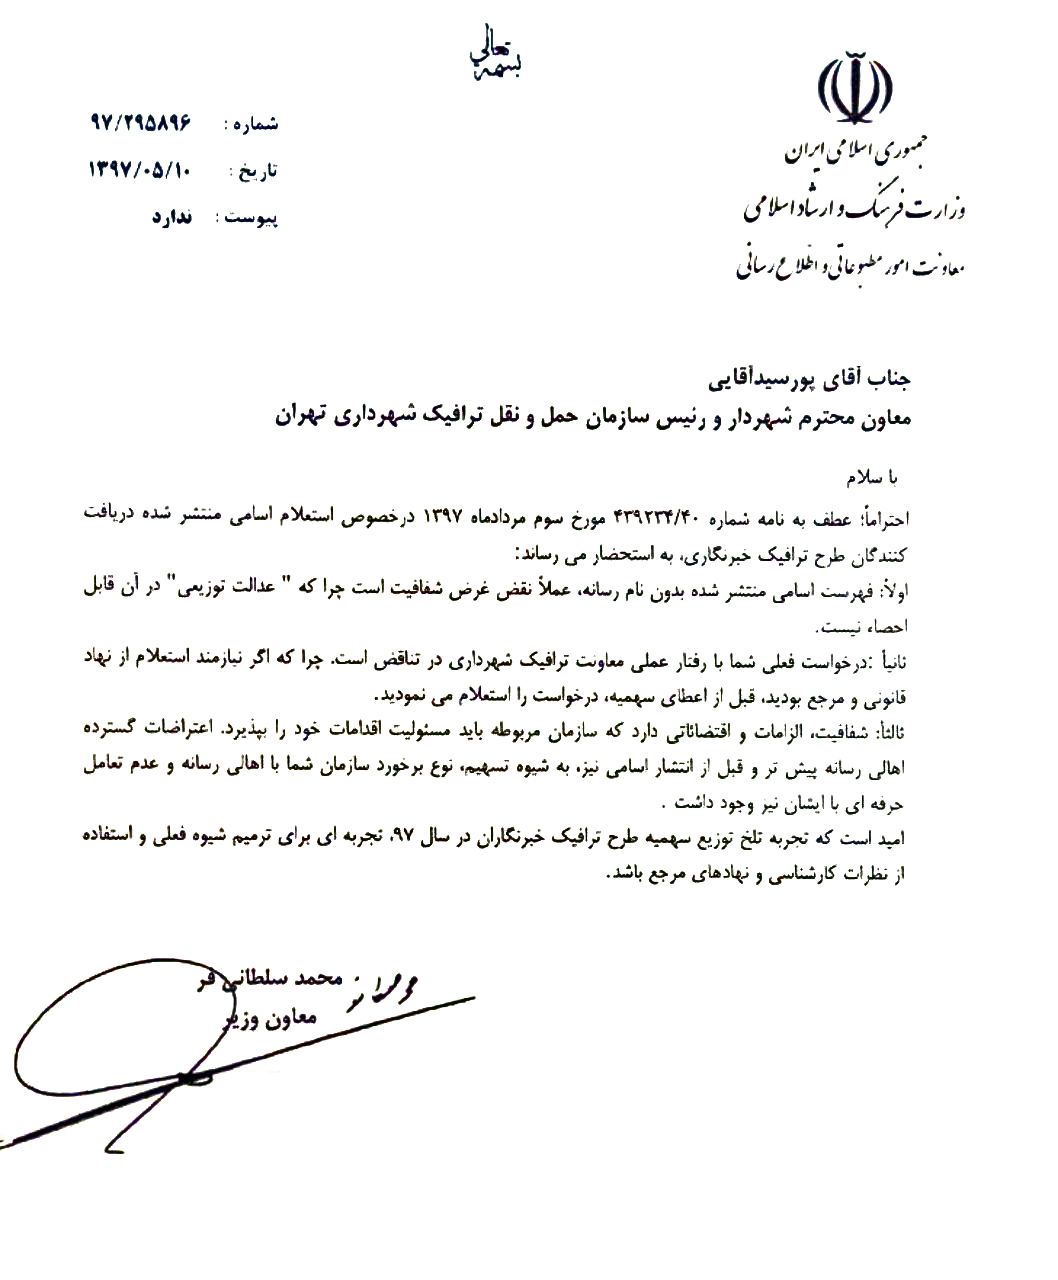 بسمه تعالی
جمهوری اسلامی ایران
وزارت فرهنگ و ارشاد اسلامی
معاونت امور مطبوعاتی و اطلاع رسانی
شماره : ۹۷/۲۹۵۸۹۶
تاریخ : ۱۳۹۷/۰۵/۱۰
پیوست : ندارد
جناب آقای پورسیدآقایی
معاون محترم شهردار و رئیس سازمان حمل و نقل ترافیک شهرداری تهران
با سلام
احتراماً؛ عطف به نامه شماره ۴۳۹۲۳۴/۴۰ مورخ سوم مردادماه ۱۳۹۷ درخصوص استعلام اسامی منتشر شده دریافت
کنندگان طرح ترافیک خبرنگاری، به استحضار می رساند:
اولاً: فهرست اسامی منتشر شده بدون نام رسانه، عملاً نقض غرض شفافیت است چرا که " عدالت توزیعی" در آن قابل
احصاء نیست.
ثانیاً :درخواست فعلی شما با رفتار عملی معاونت ترافیک شهرداری در تناقض است. چرا که اگر نیازمند استعلام از نهاد
قانونی و مرجع بودید، قبل از اعطای سهمیه، درخواست را استعلام می نمودید.
ثالثاً: شفافیت، الزامات و اقتضائاتی دارد که سازمان مربوطه باید مسئولیت اقدامات خود را بپذیرد. اعتراضات گسترده
اهالی رسانه پیش تر و قبل از انتشار اسامی نیز، به شیوه تسهیم، نوع برخورد سازمان شما با اهالی رسانه و عدم تعامل
حرفه ای با ایشان نیز وجود داشت .
امید است که تجربه تلخ توزیع سهمیه طرح ترافیک خبرنگاران در سال ۹۷، تجربه ای برای ترمیم شیوه فعلی و استفاده
از نظرات کارشناسی و نهادهای مرجع باشد.
محمد سلطانی فر
معاون وزیر